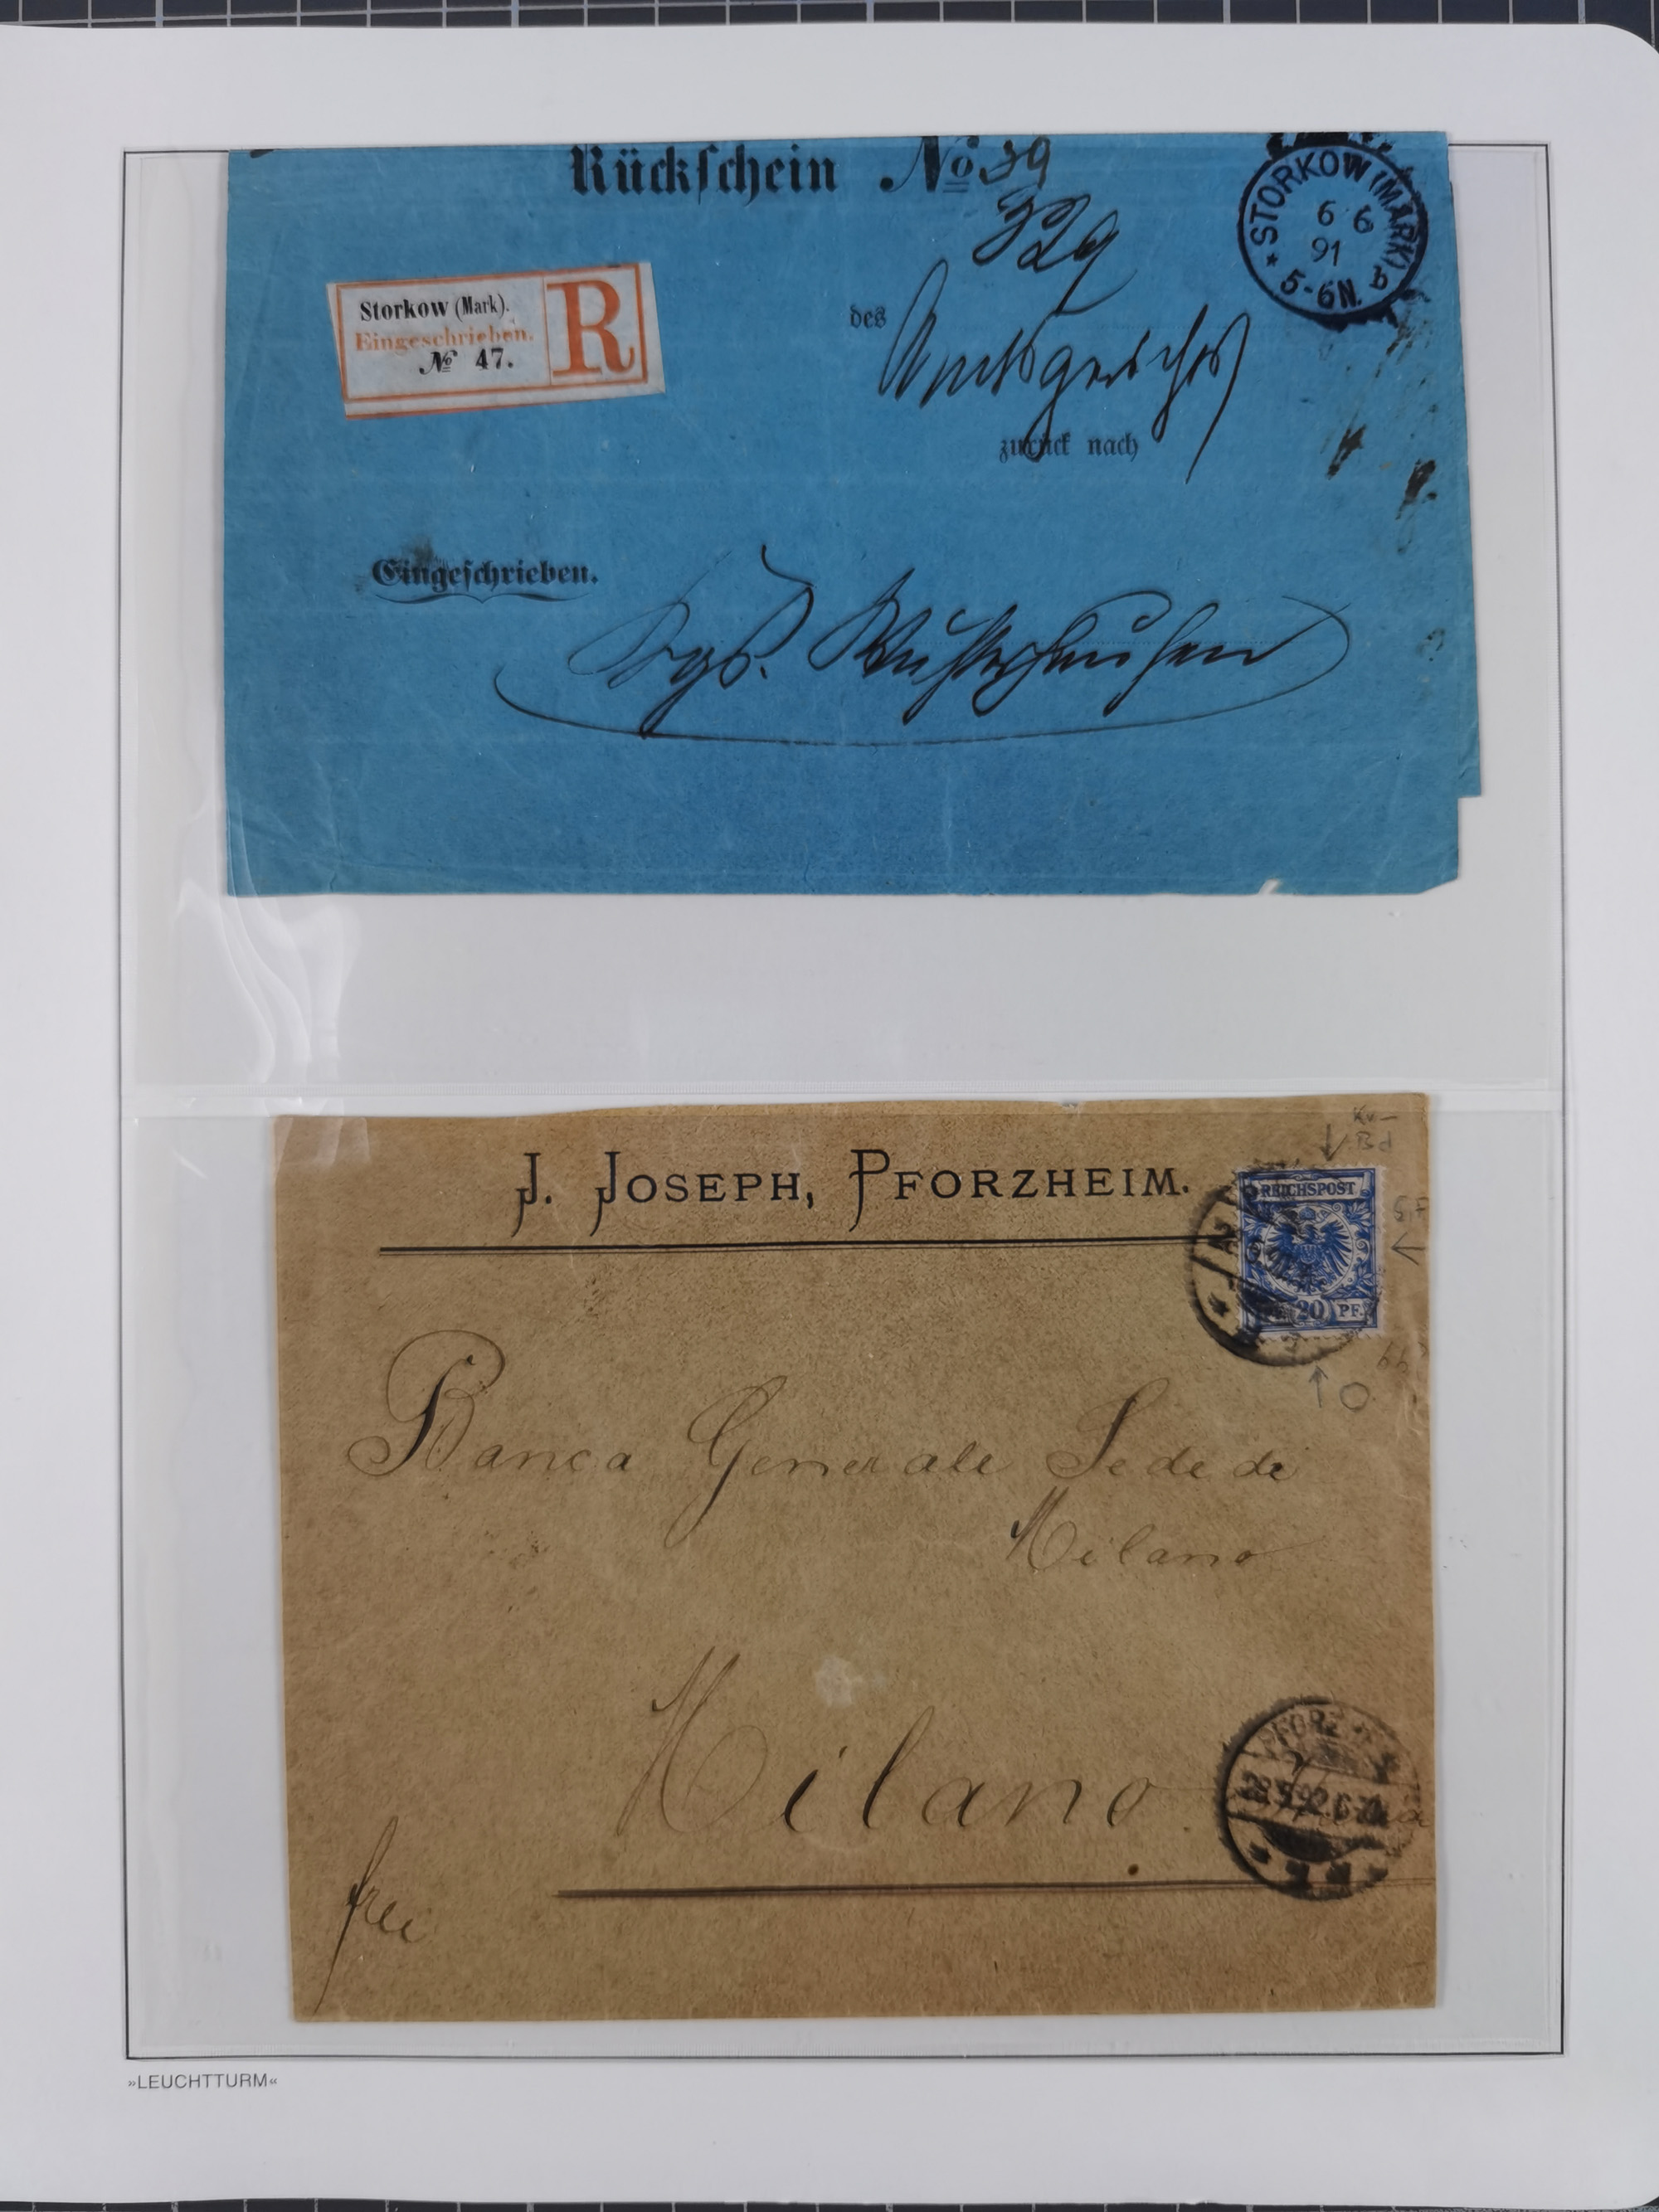 Rückschein No 39
329
STORKOW (MARK)
6 6
91
5-6N.
Storkow (Mark).
Eingeschrieben.
No 47.
R
des Amtsgerichts
zurück nach
Eingeschrieben.
Kgs. Wusterhausen
J. JOSEPH, PFORZHEIM.
REICHSPOST
20 PF.
Banca Generale Sede di
Milano
Milano
PFORZ
frei
»LEUCHTTURM«